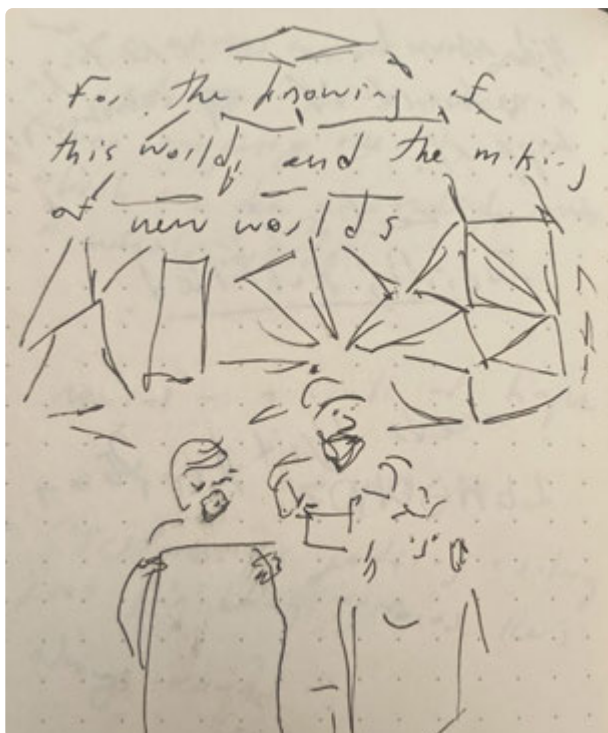 For the knowing of
this world, and the making
of new worlds